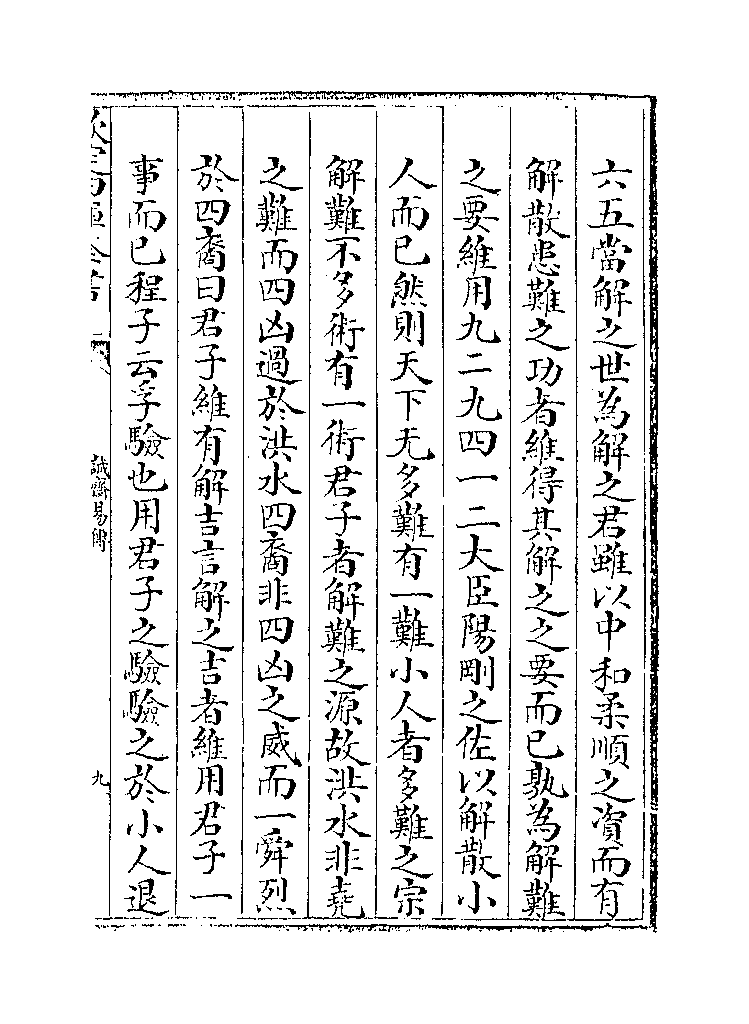 六五當解之世為解之君雖以中和柔順之資而有
解散患難之功者維得其解之之要而已孰為解難
之要維用九二九四一二大臣陽剛之佐以解散小
人而已然則天下无多難有一難小人者多難之宗
解難不多術有一術君子者解難之源故洪水非堯
之難而四凶過於洪水四裔非四凶之威而一舜烈
於四裔曰君子維有解吉言解之吉者維用君子一
事而已程子云孚驗也用君子之驗驗之於小人退
誠齋易傳
九